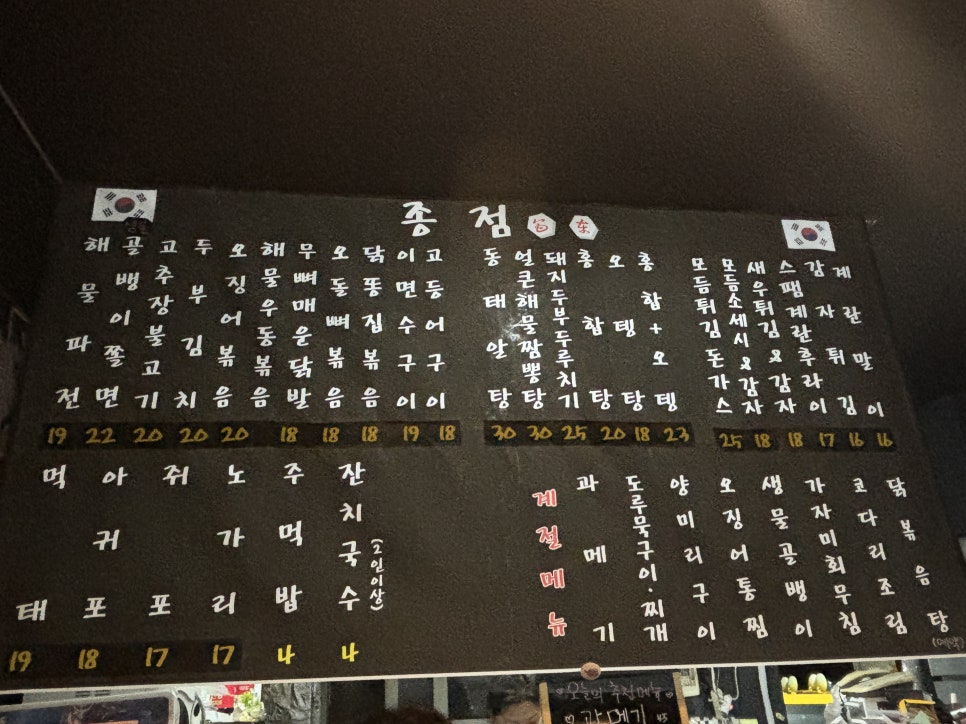 종점
해물파전
골뱅이쫄면
고추장불고기
두부김치
오징어볶음
해물우동볶음
무뼈매운닭발
오돌뼈볶음
닭똥집볶음
이면수구이
고등어구이
19 22 20 20 20 18 18 18 19 18
동태알탕
얼큰해물짬뽕탕
돼지두부두루치기
홍합탕
오뎅탕
홍합+오뎅
30 30 25 20 18 23
모듬튀김돈가스
모듬소세지&감자
새우튀김&감자
스팸계란후라이
감자튀김
계란말이
25 18 18 17 16 16
먹태
아귀포
쥐포
노가리
주먹밥
잔치국수(2인이상)
19 18 17 17 4 4
계절메뉴
과메기
도루묵구이·찌개
양미리구이
오징어통찜
생물골뱅이
가자미회무침
코다리조림
닭볶음탕(예약)
오늘의 추천메뉴
♡ 과메기 45